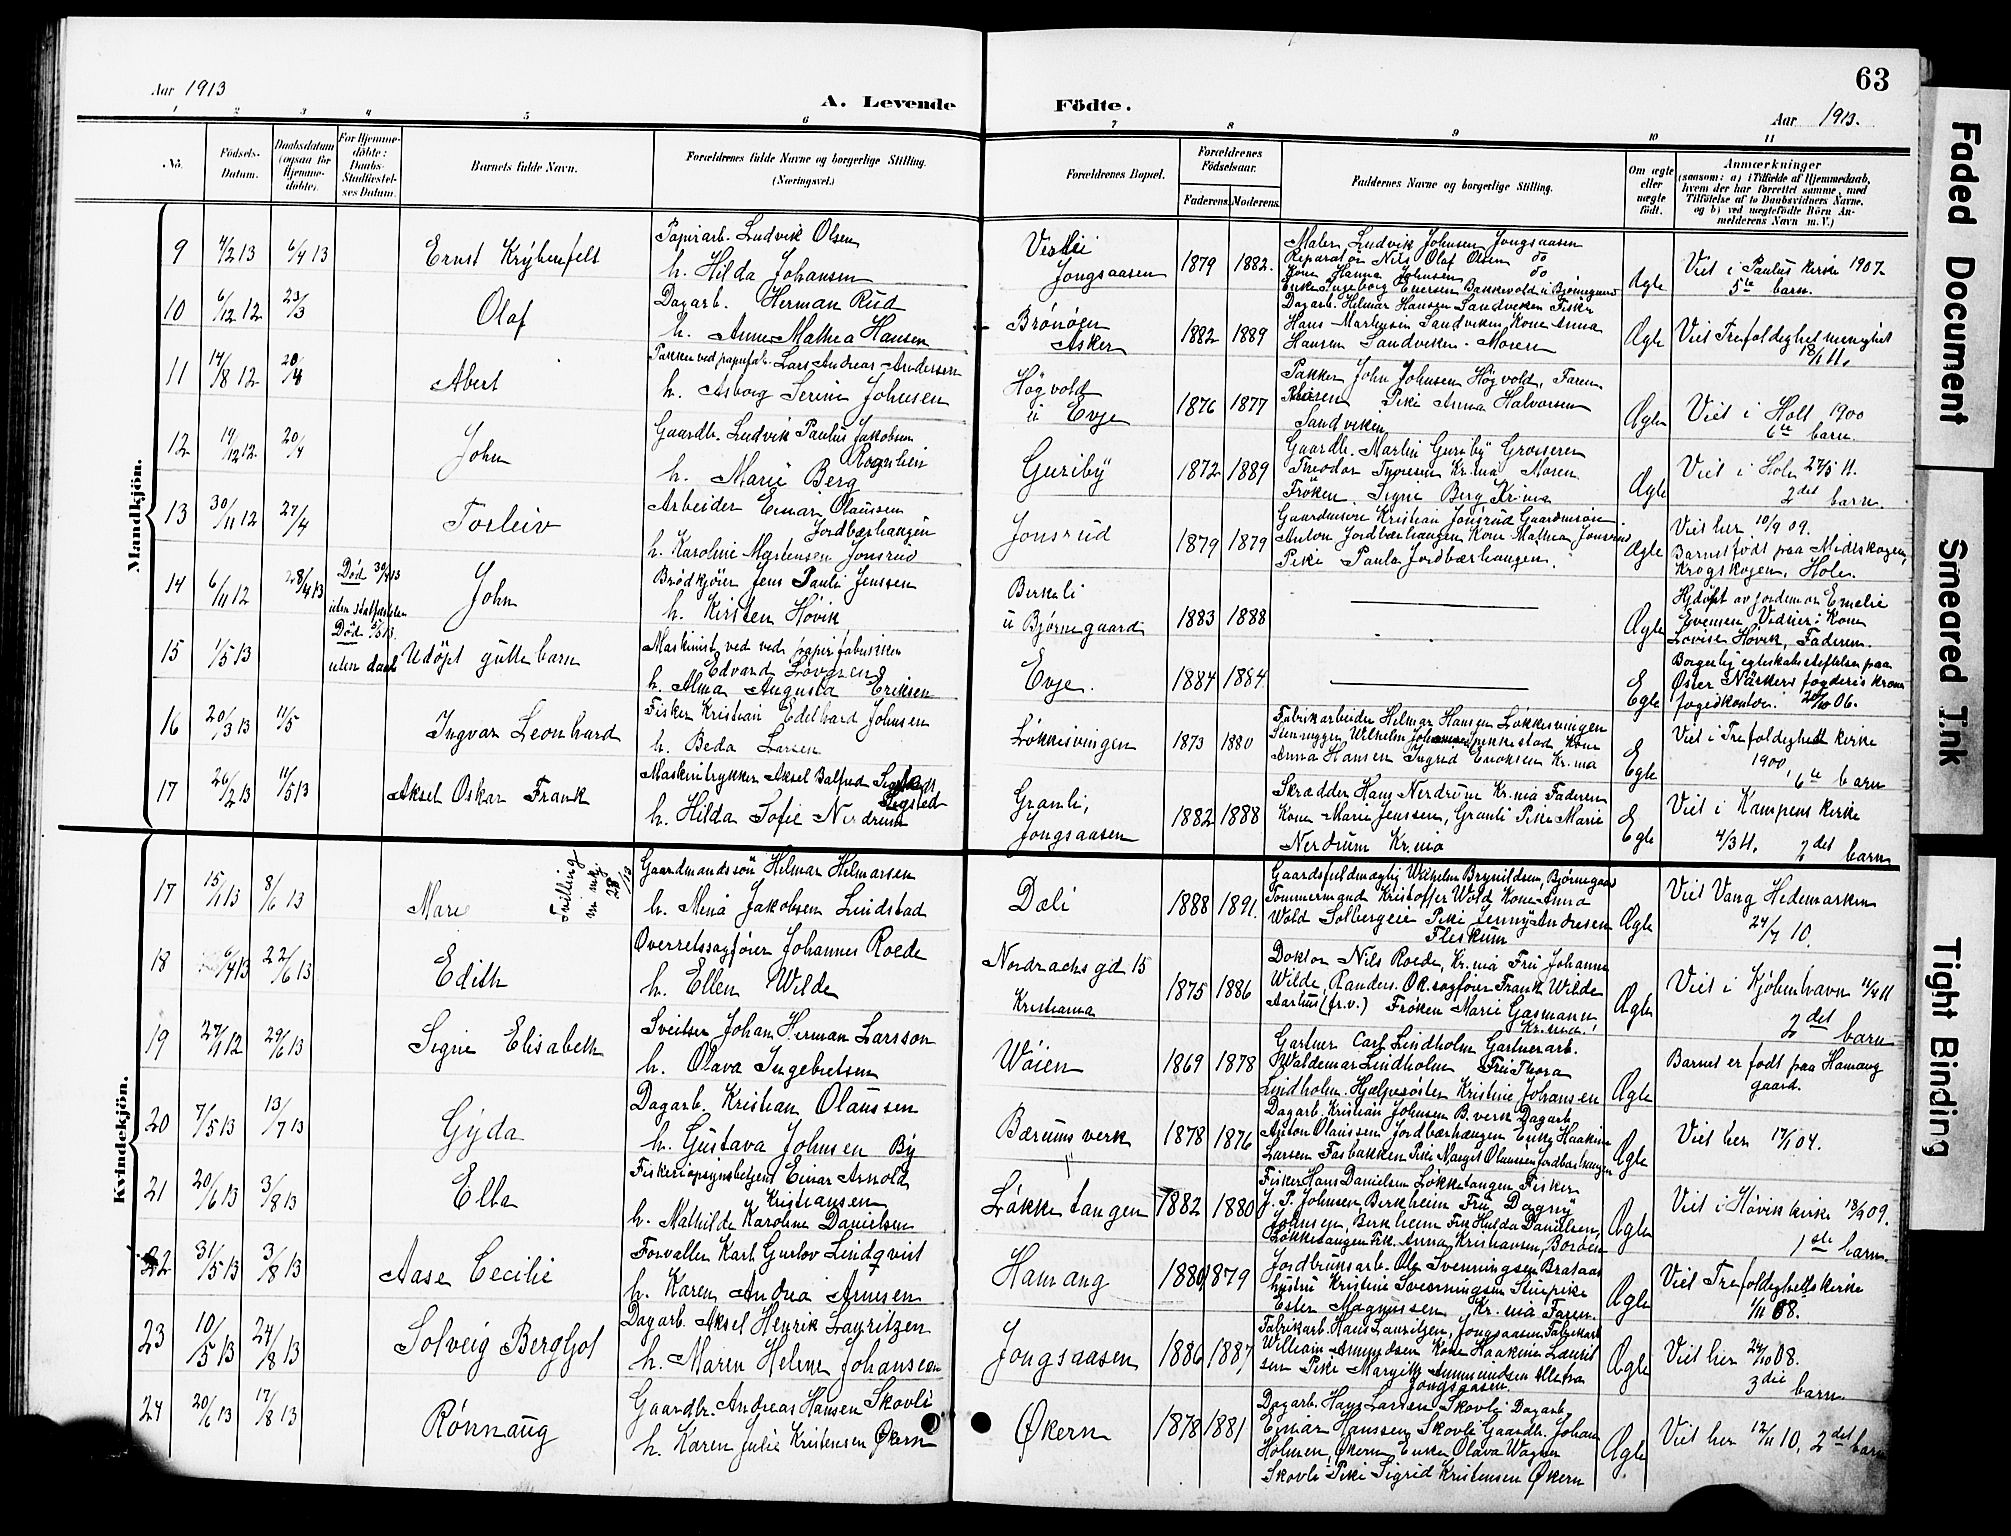 63
Aar 1913
A. Levende Födte.
Aar 1913.
1 2 3 4 5 6 7 8 9 10 11
No.
Födsels-Datum.
Daabsdatum (ogsaa for Hjemme-döbte).
For Hjemme-döbte: Daabs-Stadfæstel-ses Datum.
Barnets fulde Navn.
Forældrenes fulde Navne og borgerlige Stilling. (Næringsvei.)
Forældrenes Bopæl.
Forældrenes Födselsaar.
Faderens. Moderens.
Faddernes Navne og borgerlige Stilling.
Om ægte eller uægte födt.
Anmærkninger
(saasom: a) i Tilfælde af Hjemmedaab, hvem der har forrettet samme, med Tilföielse af to Daabsvidners Navne, og b) ved uægtefödte Börn An-melderens Navn m. V.)
Mandkjön.
9 4/2 13 6/4 13 Ernst Krybenfelt
Papirarb. Ludvik Olsen
h. Hilda Johansen
Vestli
Jongsaasen 1879 1882.
Maler Ludvik Johnsen Jongsaasen
Reparatør Nils Olaf Olsen do
Kone Hanna Johnsen do
Enke Ingeborg Evensen Bakkevold u Bjørnegaard
Ægte
Viet i Paulus kirke 1907
5te barn.
10 6/12 12 23/3 Olaf
Dagarb. Herman Rud
h. Anna Mathea Hansen
Brønøen
Asker 1882 1889
Dagarb. Helmar Hansen Sandviken Fisker
Hans Martinsen Sandviken Kone Anna
Hansen Sandviken. Moren
Ægte
Viet Trefoldighet menighet
18/1 11.
11 14/8 12 20/4 Abert
Pakker ved papirfab. Lars Andreas Andersen
h. Asborg Serine Johnsen
Høgvold
u Evje 1876 1877
Pakker John Johnsen Høgvold, Faren
Moren Pike Anna Halvorsen
Sandviken
Ægte
Viet i Holt 1900
6te barn.
12 19/12 12 20/4 John
Gaardb. Ludvik Paulus Jakobsen
Rognlien
h. Marie Berg
Guriby 1872 1889
Gaardb. Martin Guriby Grosserer
Theodor Thoresen Kr.nia Moren
Frøken Signe Berg Kr.nia
Ægte
Viet i Hole 27/5 11.
2det barn.
13 30/11 12 27/4 Torleiv
Arbeider Einar Olaussen
Jordbærhaugen
h. Karoline Martensen Jonsrud
Jonsrud 1879 1879
Gaardmandssøn Kristian Jonsrud Gaardmandssøn
Anton Jordbærhaugen Kone Mathea Jonsrud
Pike Paula Jordbærhaugen.
Ægte
Viet her 10/9 09.
Barnet født paa Midtskogen,
Krogskogen, Hole.
14 6/11 12 28/4 13 Død 30/4 13
uten stadfæstelse
John
Brødkjører Jens Pauli Jenssen
h. Kirsten Høvik
Birkeli
u Bjørnegaard 1883 1888
Ægte
Hjdøpt av jordmor Emelie
Evensen Vidner: Kone
Lovise Høvik, Faderen.
15 1/5 13 Død 5/5 13.
uten daab
Udøpt guttebarn
Maskinist ved ved papirfabrikken
Edvard Løvgren
h. Alma Augusta Eriksen
Evje. 1884 1884
Egte
Borgerlig egteskabsstiftelse paa
Øster Näskers fogderis krono
fogedkontor. 20/10 06.
16 20/3 13 11/5 Ingvar Leonhard
Fisker Kristian Edelhard Johnsen
h. Beda Larsen
Løkkesvingen 1873 1880
Fabrikarbeider Helmar Hansen Løkkesvingen
Wilhelm Johansen Spikkestad Kone
Anna Hansen Ingrid Eriksen Kr.nia
Egte
Viet i Trefoldighed kirke
1900, 6te barn
17 26/2 13 11/5 13 Aksel Oskar Frank
Maskintrykker Aksel Balfred
Sigsted
h. Hilda Sofie Nerdrum
Granli,
Jongsaasen 1882 1888
Skrædder Hans Nerdrum Kr.nia Faderen
Kone Marie Jenssen, Granli Pike Marie
Nerdrum Kr.nia
Egte
Viet i Kampens kirke
4/3 11. 2det barn
Kvindekjön.
17 15/1 13 8/6 13 Mari
Tvilling
m nr
28/13
Gaardmandssøn Helmar Helmersen
h. Mina Jakobsen Lindstad
Dæli 1888 1891.
Gaardsfuldmægtig Wilhelm Brynildsen, Bjørnegaard
Tømmermand Kristoffer Wold Kone Anna
Wold Solbergeie Pike Jenny Andresen
Fleskum
Ægte
Viet Vang Hedemarken
24/7 10.
18 6/4 13 22/6 13 Edith
Overretssagfører Johannes Roede
h. Ellen Wilde
Nordraachs gd 15
Kristiania 1875 1886
Doktor Nils Roede, Kr.nia Fru Johanne
Wilde, Randers. OR.sagfører Frank Wilde
Aarhus (fr.v.) Frøken Marie Gasmann
Kr.nia.
Ægte
Viet i Kjøbenhavn 11/4 11
2det barn
19 27/11 12 29/6 13 Signe Elisabeth
Sveitser Johan Herman Larsson
h. Olava Ingebretsen
Wøien 1869 1878
Gartner Carl Lindholm Gartnerarb.
Waldemar Lindholm Fru Thora
Lindholm Hjælpesøster Kristine Johansen
Ægte
Barnet er født paa Hamang
gaard.
20 7/5 13 13/7 13 Gyda
Dagarb. Kristian Olaussen
h. Gustava Johnsen By
Bærums verk 1878 1876
Dagarb. Kristian Johnsen B. verk Dagarb.
Anton Olaussen Jordbærhaugen Enke Haakine
Larsen Fasbakken Pike Margit Olaussen Jordbærhaugen
Ægte
Viet her 17/1 04.
21 20/6 13 3/8 13 Ella
Fiskeriopsynsbetjent Einar Arnold
Kristiansen
h. Mathilde Karoline Danielsen
Løkketangen 1882 1880
Fisker Hans Danielsen Løkketangen, Fisker
J. P. Johnsen, Berkheim Fru Dagny
Johnsen, Berkheim Fru Hulda Danielsen,
Løkketangen Frk. Anna Kristiansen, Borøen
Ægte
Viet i Høvik kirke 13/3 09.
1ste barn.
22 31/5 13 3/8 13 Aase Cecilie
Forvalter Karl Gustov Lindqvist
h. Karen Andrea Arnesen
Hamang 1880 1879
Jordbruksarb. Ole Svenningsen Brataas
hustru Kristine Svenningsen Stuepike
Ester Magnussen Kr.nia Faren
Ægte
Viet Trefoldighetskirke
1/11 08.
23 10/5 13 24/8 13 Solveig Bergljot
Dagarb. Aksel Henrik Lauritzen
h. Maren Helene Johansen
Jongsaasen 1886 1887
Fabrikarb. Hans Lauritzen, Jongsaasen Fabrikarb
William Amundsen Kone Haakine Laurit
sen Pike Margith Ammundsen Alle fra
Jongsaasen.
Ægte
Viet her 24/10 08.
3die barn
24 20/6 13 17/8 13 Rønnaug
Gaardbr. Andreas Hansen Skovli
h. Karen Julie Kristensen Økern
Økern 1878 1881
Dagarb. Hans Larsen Skovli Dagarb.
Einar Hanssen Skovli Gaardb. Johan
Holmen, Økern Enke Olava Wagner
Skovli Pike Sigrid Kristensen Økern
Ægte
Viet her 12/11 10, 2det barn
Faded Document
Smeared Ink
Tight Binding